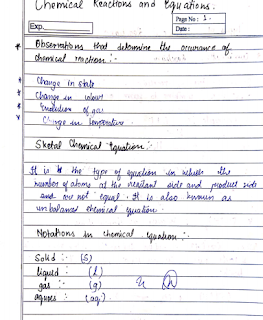 Chemical Reactions and Equations.
Page No: 1.
Exp.
Date:
* Observations that determine the occurance of
chemical reaction:-
* Change in state
* Change in colour
* Evolution of gas
* Change in temperature
Sketal Chemical Equation:-
It is the type of equation in which the
number of atoms of the reactant side and product side
are not equal. It is also known as
unbalanced chemical equation.
Notations in chemical equation:-
Solid :- (s)
liquid :- (l)
gas :- (g)
aques :- (aq)